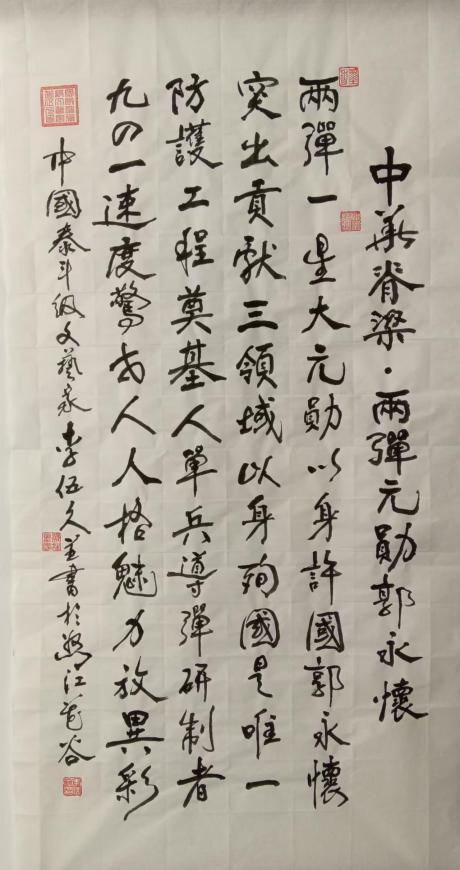 中華脊梁·兩彈元勛郭永懷
兩彈一星大元勛以身許國郭永懷
突出貢獻三領域以身殉國是唯一
防護工程奠基人單兵導彈研制者
九四一速度驚世人人格魅力放異彩
中國泰斗級文藝家李伍久並書於江龍谷